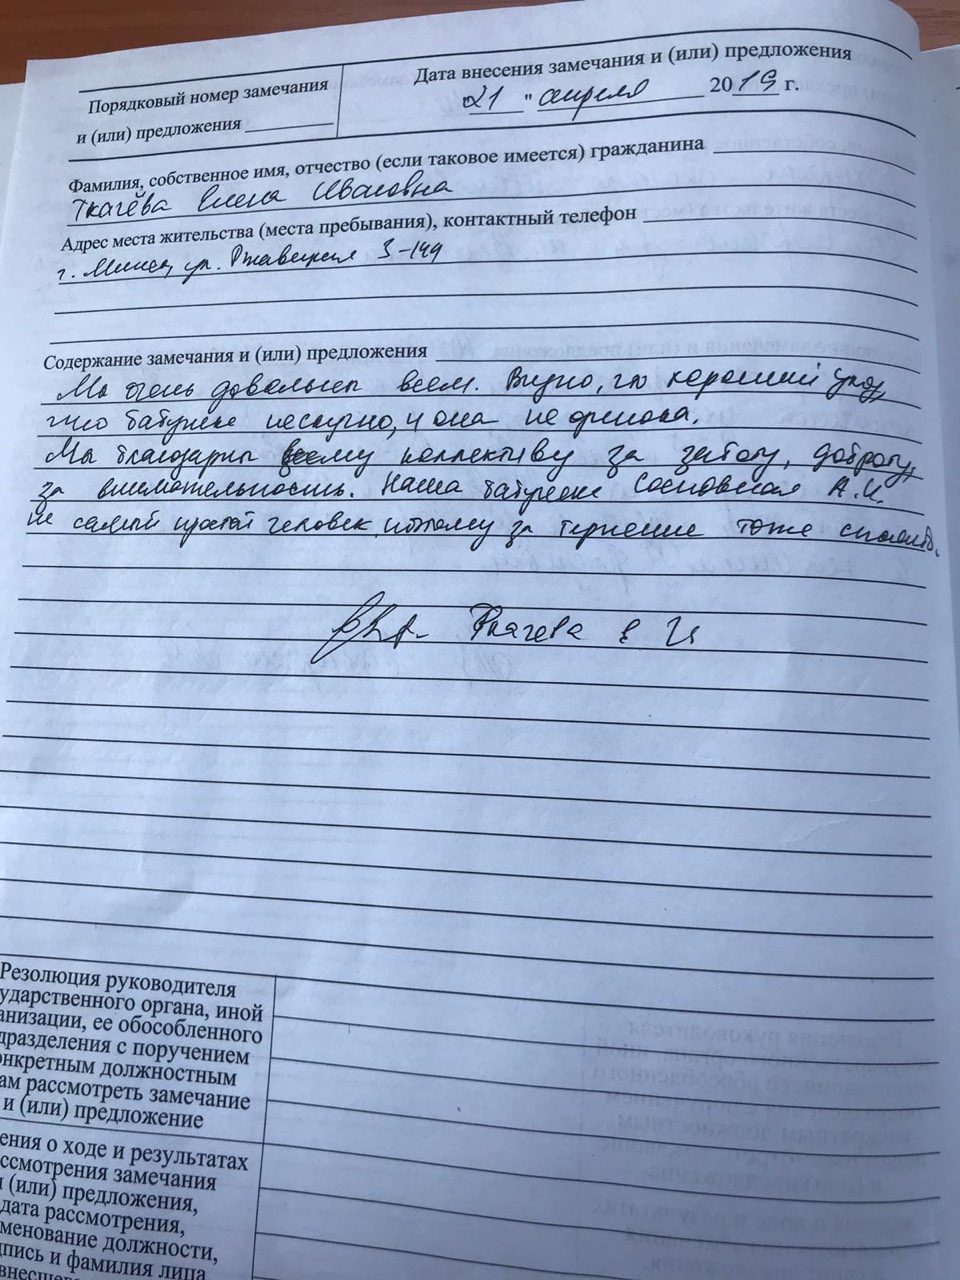 Порядковый номер замечания
и (или) предложения
Дата внесения замечания и (или) предложения
21 " апреля 2019 г.
Фамилия, собственное имя, отчество (если таковое имеется) гражданина
Ткачёва Елена Ивановна
Адрес места жительства (места пребывания), контактный телефон
г. Минск, ул. 3-149
Содержание замечания и (или) предложения
Мы очень довольны всем. Видно, что хороший уход,
что бабушке нескучно, и она не одинока.
Мы благодарим всему коллективу за заботу, доброту,
за внимательность. Наша бабушка Сосновская А.И.
не самый простой человек, потому за терпение тоже спасибо.
Ткачева Е И
Резолюция руководителя
ударственного органа, иной
анизации, ее обособленного
дразделения с поручением
онкретным должностным
ам рассмотреть замечание
и (или) предложение
ения о ходе и результатах
ссмотрения замечания
и (или) предложения,
дата рассмотрения,
менование должности,
дпись и фамилия лица